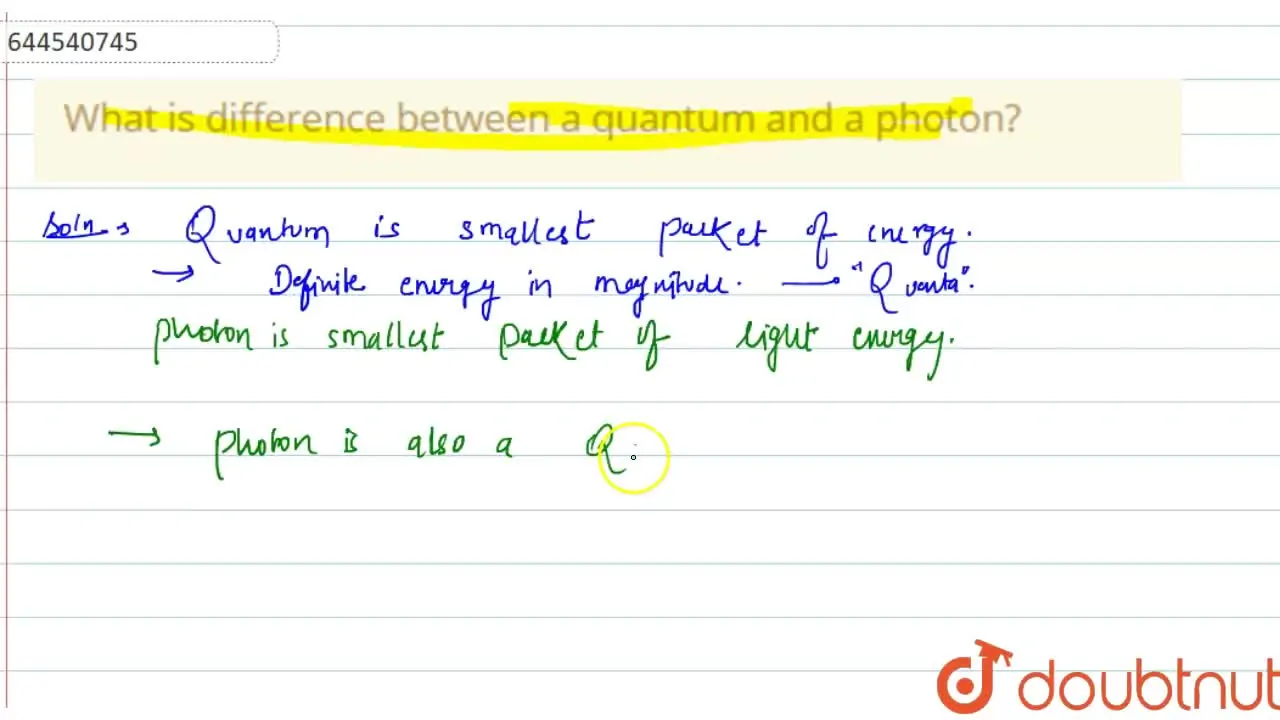 644540745
What is difference between a quantum and a photon?
Soln → Quantum is smallest packet of energy.
→ Definite energy in magnitude. → "Quanta".
Photon is smallest packet of light energy.
→ photon is also a Q
doubtnut